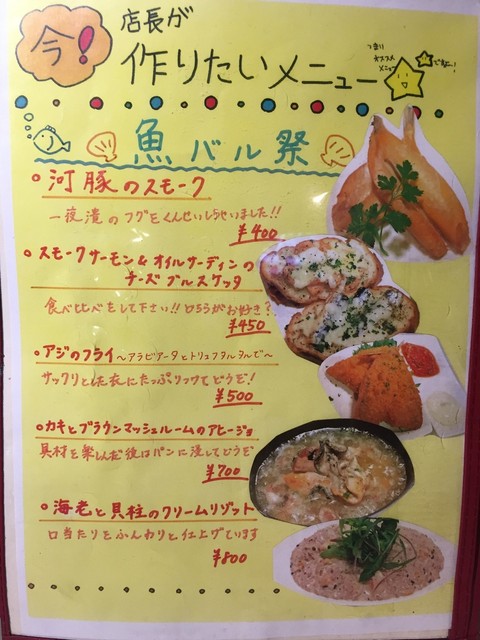 今!
店長が
作りたいメニュー
つまり
オススメ
メニュー
ですね…!
魚バル祭
河豚のスモーク
一夜漬のフグをくんせいしちゃいました!!
¥400
スモークサーモン&オイルサーディンの
チーズブルスケッタ
食べ比べをして下さい!! どちらがお好き?
¥450
アジのフライ〜アラビアータとトリュフタルタルで〜
サックリとした衣にたっぷりつけてどうぞ!
¥500
カキとブラウンマッシュルームのアヒージョ
具材を楽しんだ後はパンに浸してどうぞ
¥700
海老と貝柱のクリームリゾット
口当たりをふんわりと仕上げています
¥800